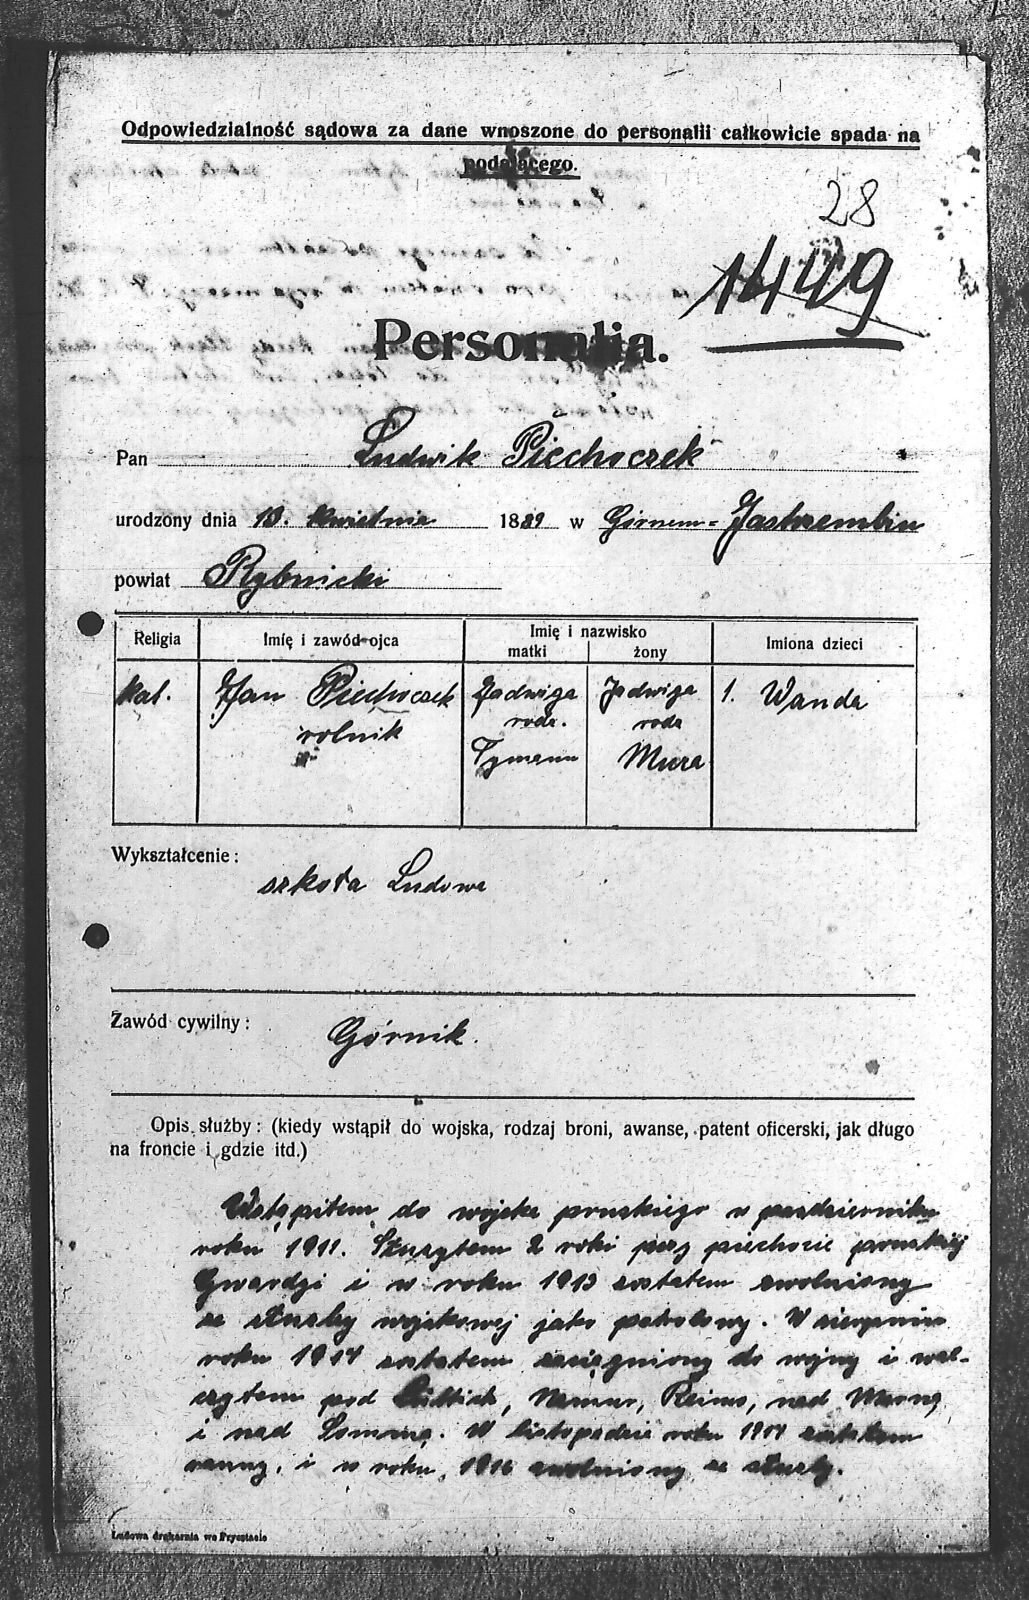 Odpowiedzialność sądowa za dane wnoszone do personalii całkowicie spada na
podającego.
28
1449
Personalia.
Pan Ludwik Piechoczek
urodzony dnia 13. kwietnia 1889 w Górnem-Jastrzembiu
powiat Rybnicki
Religia
Imię i zawód ojca
Imię i nazwisko
matki
żony
Imiona dzieci
Kat.
Jan Piechoczek
rolnik
Jadwiga
rodz.
Jadwiga
rodz
Mura
1. Wanda
Wykształcenie:
szkoła Ludowa
Zawód cywilny:
Górnik.
Opis służby: (kiedy wstąpił do wojska, rodzaj broni, awanse, patent oficerski, jak długo
na froncie i gdzie itd.)
Wstąpiłem do wojska pruskiego w październiku
roku 1911. Służyłem 2 roki przy piechocie pruskiej
Gwardji i w roku 1913 zostałem zwolniony
ze służby wojskowej jako patrolowy. W sierpniu
roku 1914 zostałem zaciągniony do wojny i wal-
czyłem pod Lüttich, Namur, Reims, nad Marną
i nad Sommą. W listopadzie roku 1914 zostałem
ranny, i w roku 1916 zwolniony ze służby.
Ludowa drukarnia we Frysztacie